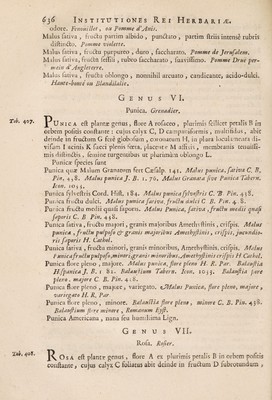 636 INSTITUTIONES REI HERBARIÆ.
odore. Fenouillet, ou Pomme d'Anis.
Malus sativa, fructu partim albido, punctato, partim striis intensè rubris
distincto. Pomme violette.
Malus sativa, fructu purpureo, duro, saccharato. Pomme de Jerusalem.
Malus sativa, fructu sessili, rubro saccharato, suavissimo. Pomme
d'Angleterre.
Malus sativa, fructu oblongo, nonnihil arcuato, candicante, acido-dulci.
Haute-bonté ou Blandilalie.
GENUS VI.
Punica. Grenadier.
Tab. 407.
PUNICA est plantæ genus, flore A rosaceo, plurimis scilicet petalis B in
orbem positis constante: cujus calyx C, D campaniformis, multifidus, abit
deinde in fructum
missimis distinctis, semine turgentibus ut plurimùm oblongo L.
Punicæ species sunt
Punica quæ Malum Granatum fert Cæsalp. 141. Malus punica, sativa C. B.
Pin. 438. Malus punica J. B. 1. 76. Malus Granata sive Punica Tabern.
Icon. 1035.
Punica sylvestris Cord. Hist. 184. Malus punica sylvestris C. B. Pin. 438.
Punica fructu dulci. Malus punica sativa, fructu dulci C. B. Pin. 438.
Punica fructu medii quasi saporis. Malus Punica, sativa, fructu medii quasi
saporis C. B. Pin. 438.
Punica sativa, fructu majori, granis majoribus Amethystinis, crispis. Malus
punica, fructu
ris saporis H. Cathol.
Punica sativa, fructu minori, granis minoribus, Amethystinis, crispis. Malus
Punica fructu pulposo, minori, granis minoribus Amethystinis, crispis H. Cathol.
Punica flore pleno, majore. Malus punica, flore pleno H. R. Par. Balaustia
Hispanica J. B. 1 82. Balaustium Tabern. Icon. 1033. Balaustia flore
pleno, majore C. B. Pin. 438.
Punica flore pleno, majore, variegato. Malus Punica, flore pleno, majore,
variegato H. R. Par
Punica flore pleno, minore. Balaustia flore pleno, minore C. B. Pin. 438.
Balaustium flore minore, Romanum Eyst.
Punica Americana, nana seu humillima Lign.
GENUS VII.
Rosa. Rosier.
Tab. 408.
ROSA est plantæ genus, flore A ex plurimis petalis B in orbem positis
constante, cujus calyx C foliatus abit deinde in fructum D subrotundum,